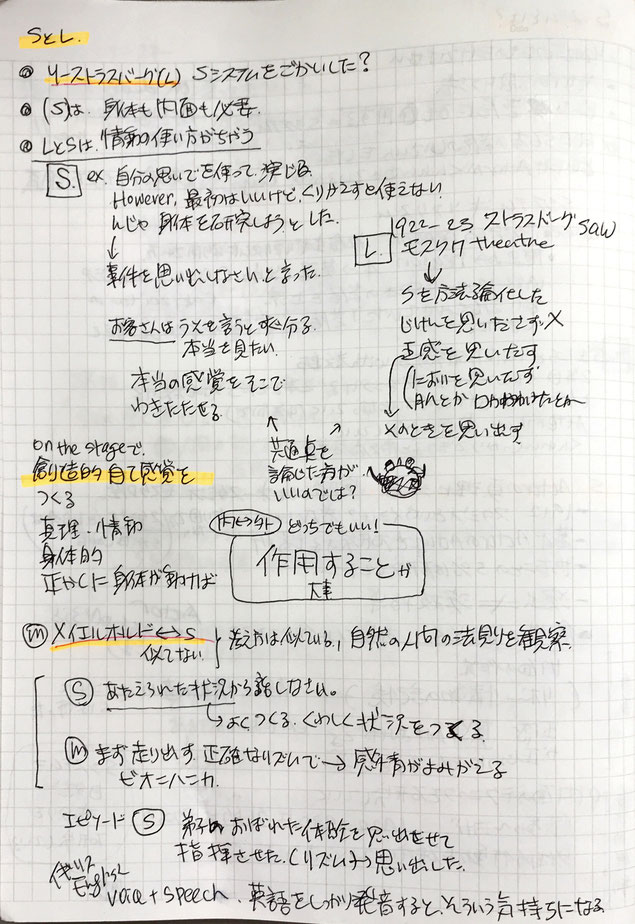 SとL.
リーストラスバーグ(L) Sシステムをごかいした?
(S)は、身体も内面も必要.
LとSは、情動の使い方がちがう
S. ex. 自分の思いでを使って、演じる.
However, 最初はいいけど、くりかえすと使えない
んじゃ 身体を研究しようとした.
↓
事件を思い出しなさい、と言った.
お客さんはウソを言うとすぐ分る.
本当を見たい.
本当の感覚をそこで
わきたたせる.
L. 1922-23 ストラスバーグ saw
モスクワ theatre
↓
Sを方法論化した
じけんを思いださず×
五感を思いだす
(においを思いだす
×のときを思い出す
共通点を
論じた方が
いいのでは?
on the stageで.
創造的自己感覚を
つくる
真理・情動
身体的
正しく身体が動けば
内と外 どっちでもいい!
作用することが
大事
(m) メイエルホルド↔S
似てない
考え方は似ている, 自然の人間の法則を観察.
(S) あたえられた状況から話しなさい。
↳よくつくる. くわしく状況をつくる.
(m) まず走り出す. 正確なリズムで→感情がよみがえる
ビオメハニカ.
エピソード (S) 弟子 おぼれた体験を思い出させて
指揮させた. (リズム)→思い出した.
イギリス
English
voice + speech. 英語をしっかり発音すると、そういう気持ちになる